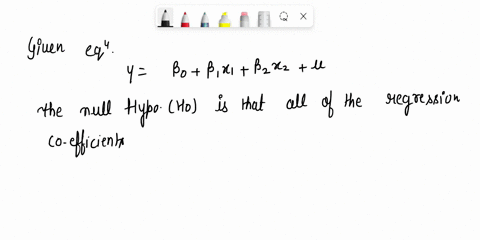 Given eqⁿ.
y = β0 + β1x1 + β2x2 + u
the null Hypo. (H0) is that all of the regression
co-efficients